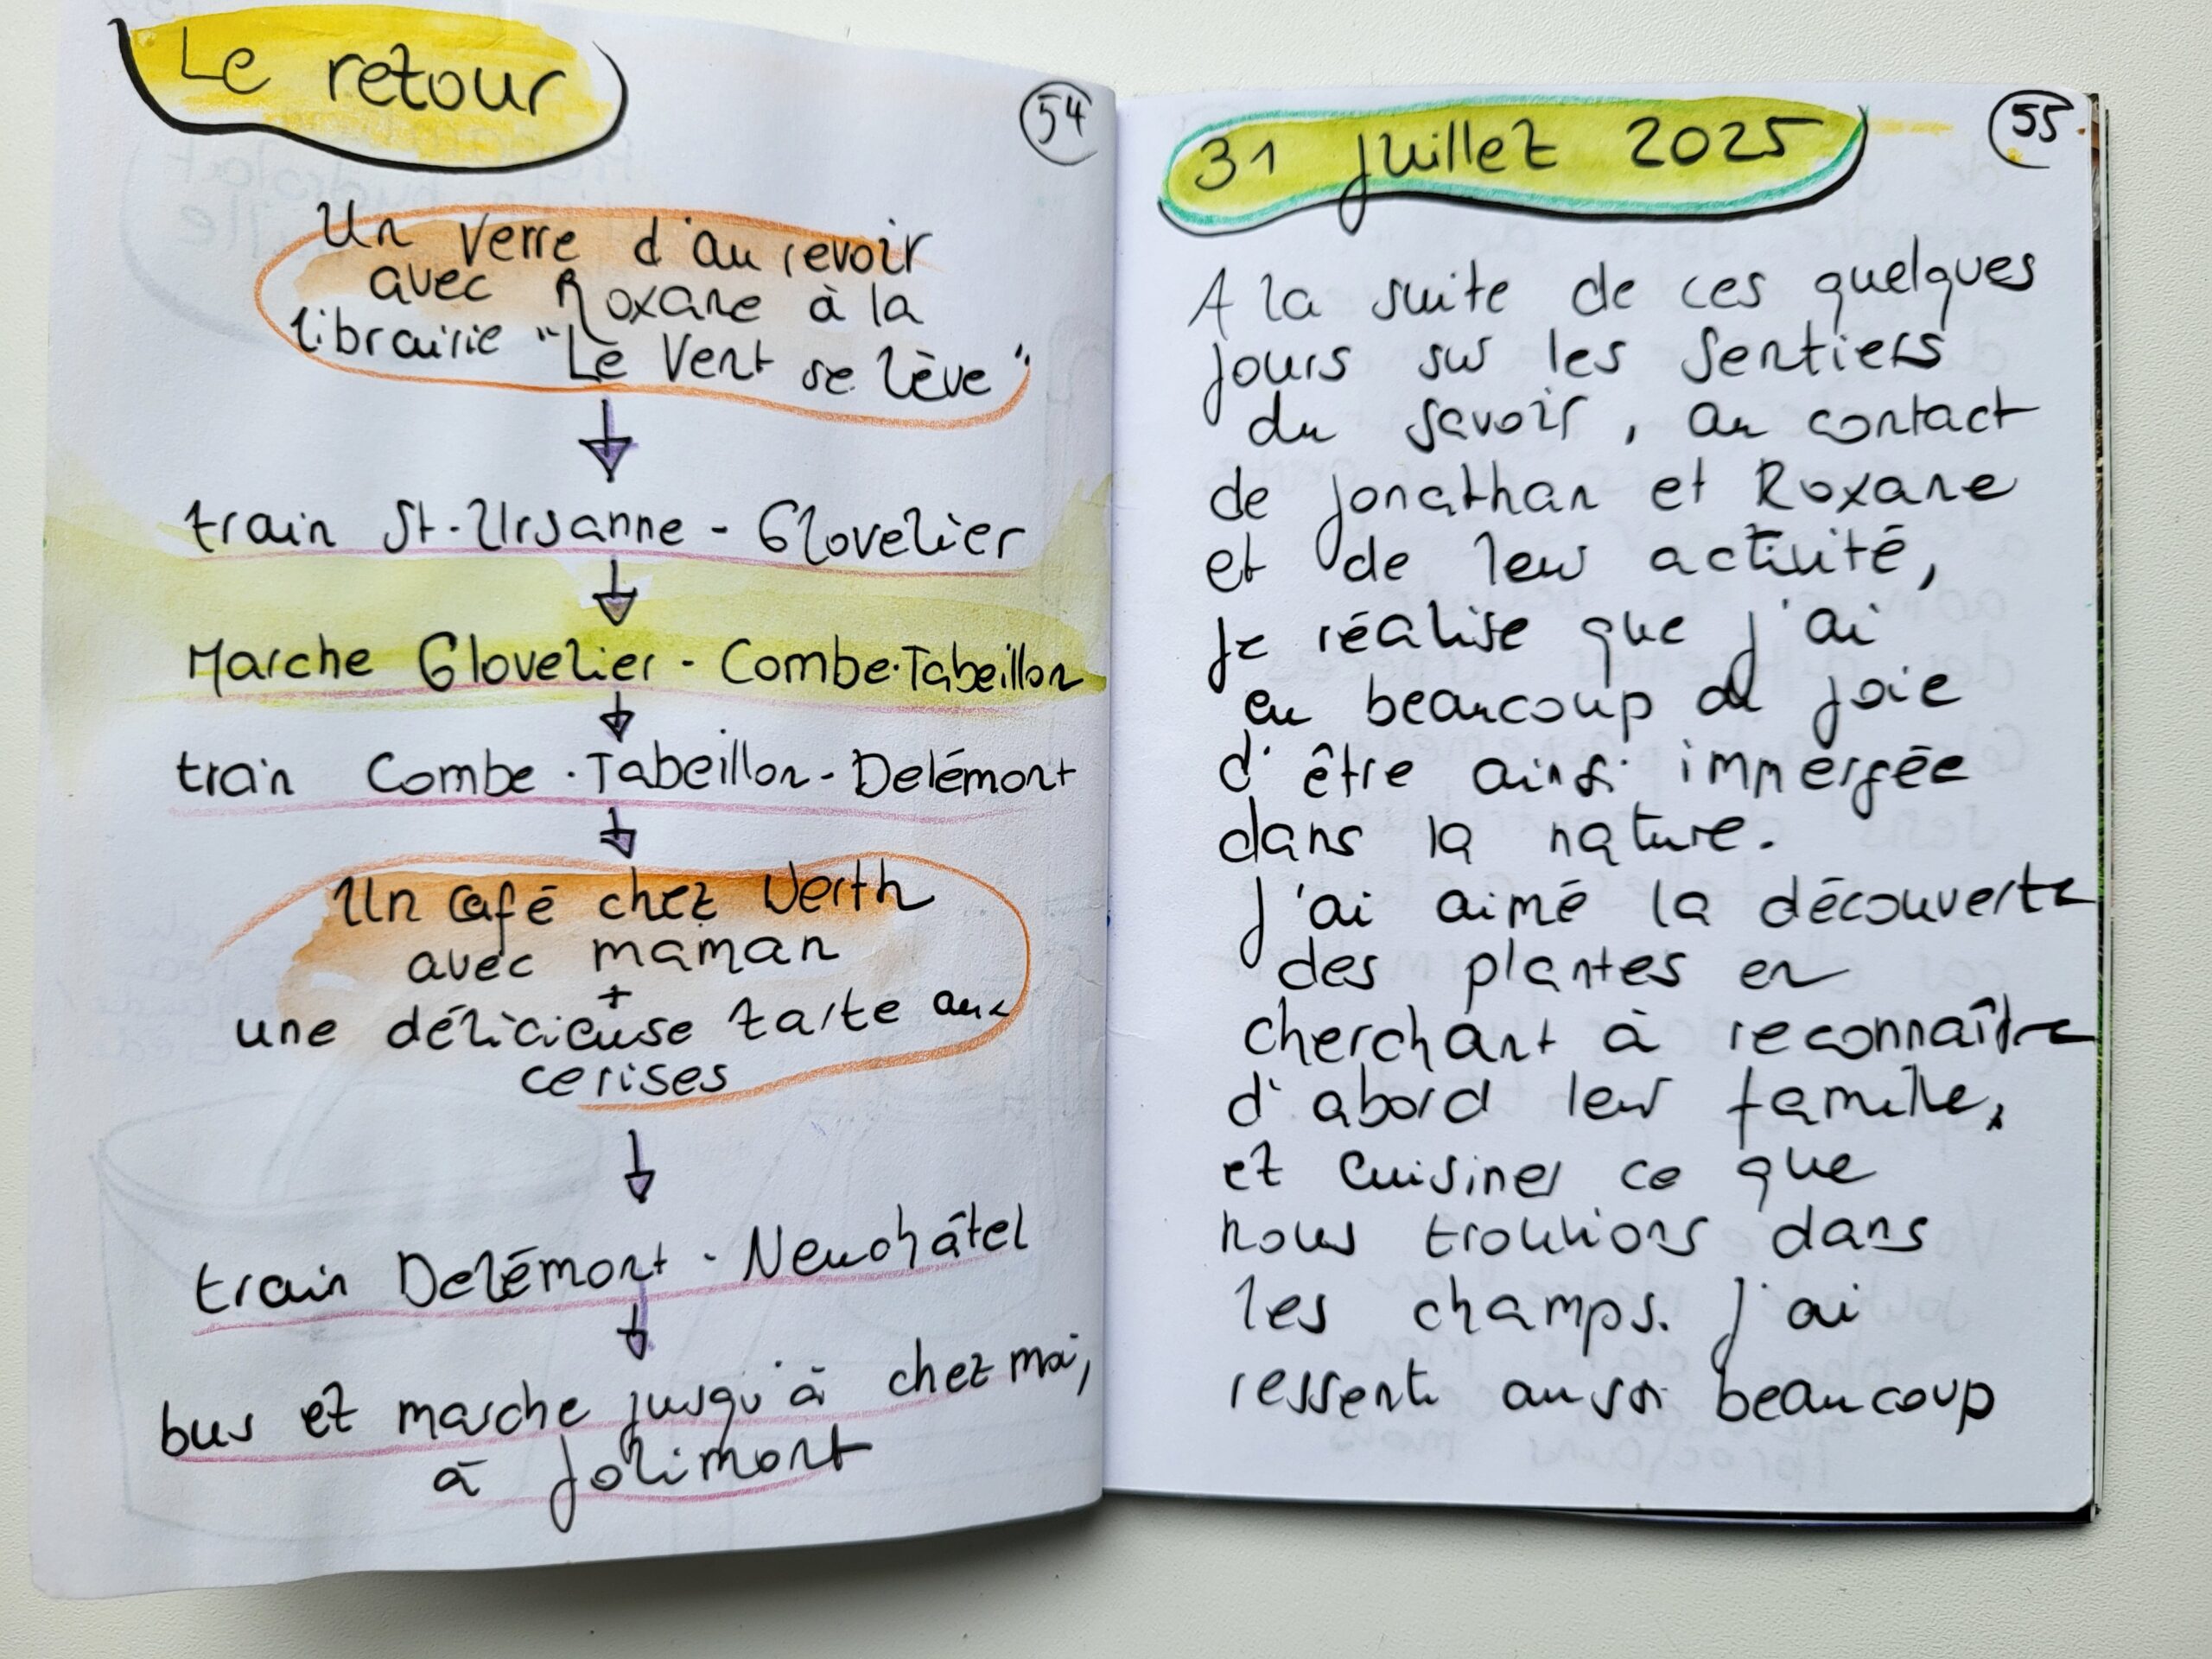 Le retour
54
Un verre d'au revoir
avec Roxane à la
librairie "Le Vent se lève"
train St-Ursanne - Glovelier
Marche Glovelier - Combe-Tabeillon
train Combe-Tabeillon - Delémont
Un café chez Werth
avec maman
+
une délicieuse tarte aux
cerises
train Delémont - Neuchâtel
bus et marche jusqu'à chez moi,
à Jolimont
31 juillet 2025
55
A la suite de ces quelques
jours sur les sentiers
du savoir, au contact
de Jonathan et Roxane
et de leur activité,
je réalise que j'ai
eu beaucoup de joie
d'être ainsi immergée
dans la nature.
J'ai aimé la découverte
des plantes en
cherchant à reconnaître
d'abord leur famille,
et cuisiner ce que
nous trouvions dans
les champs. J'ai
ressenti aussi beaucoup